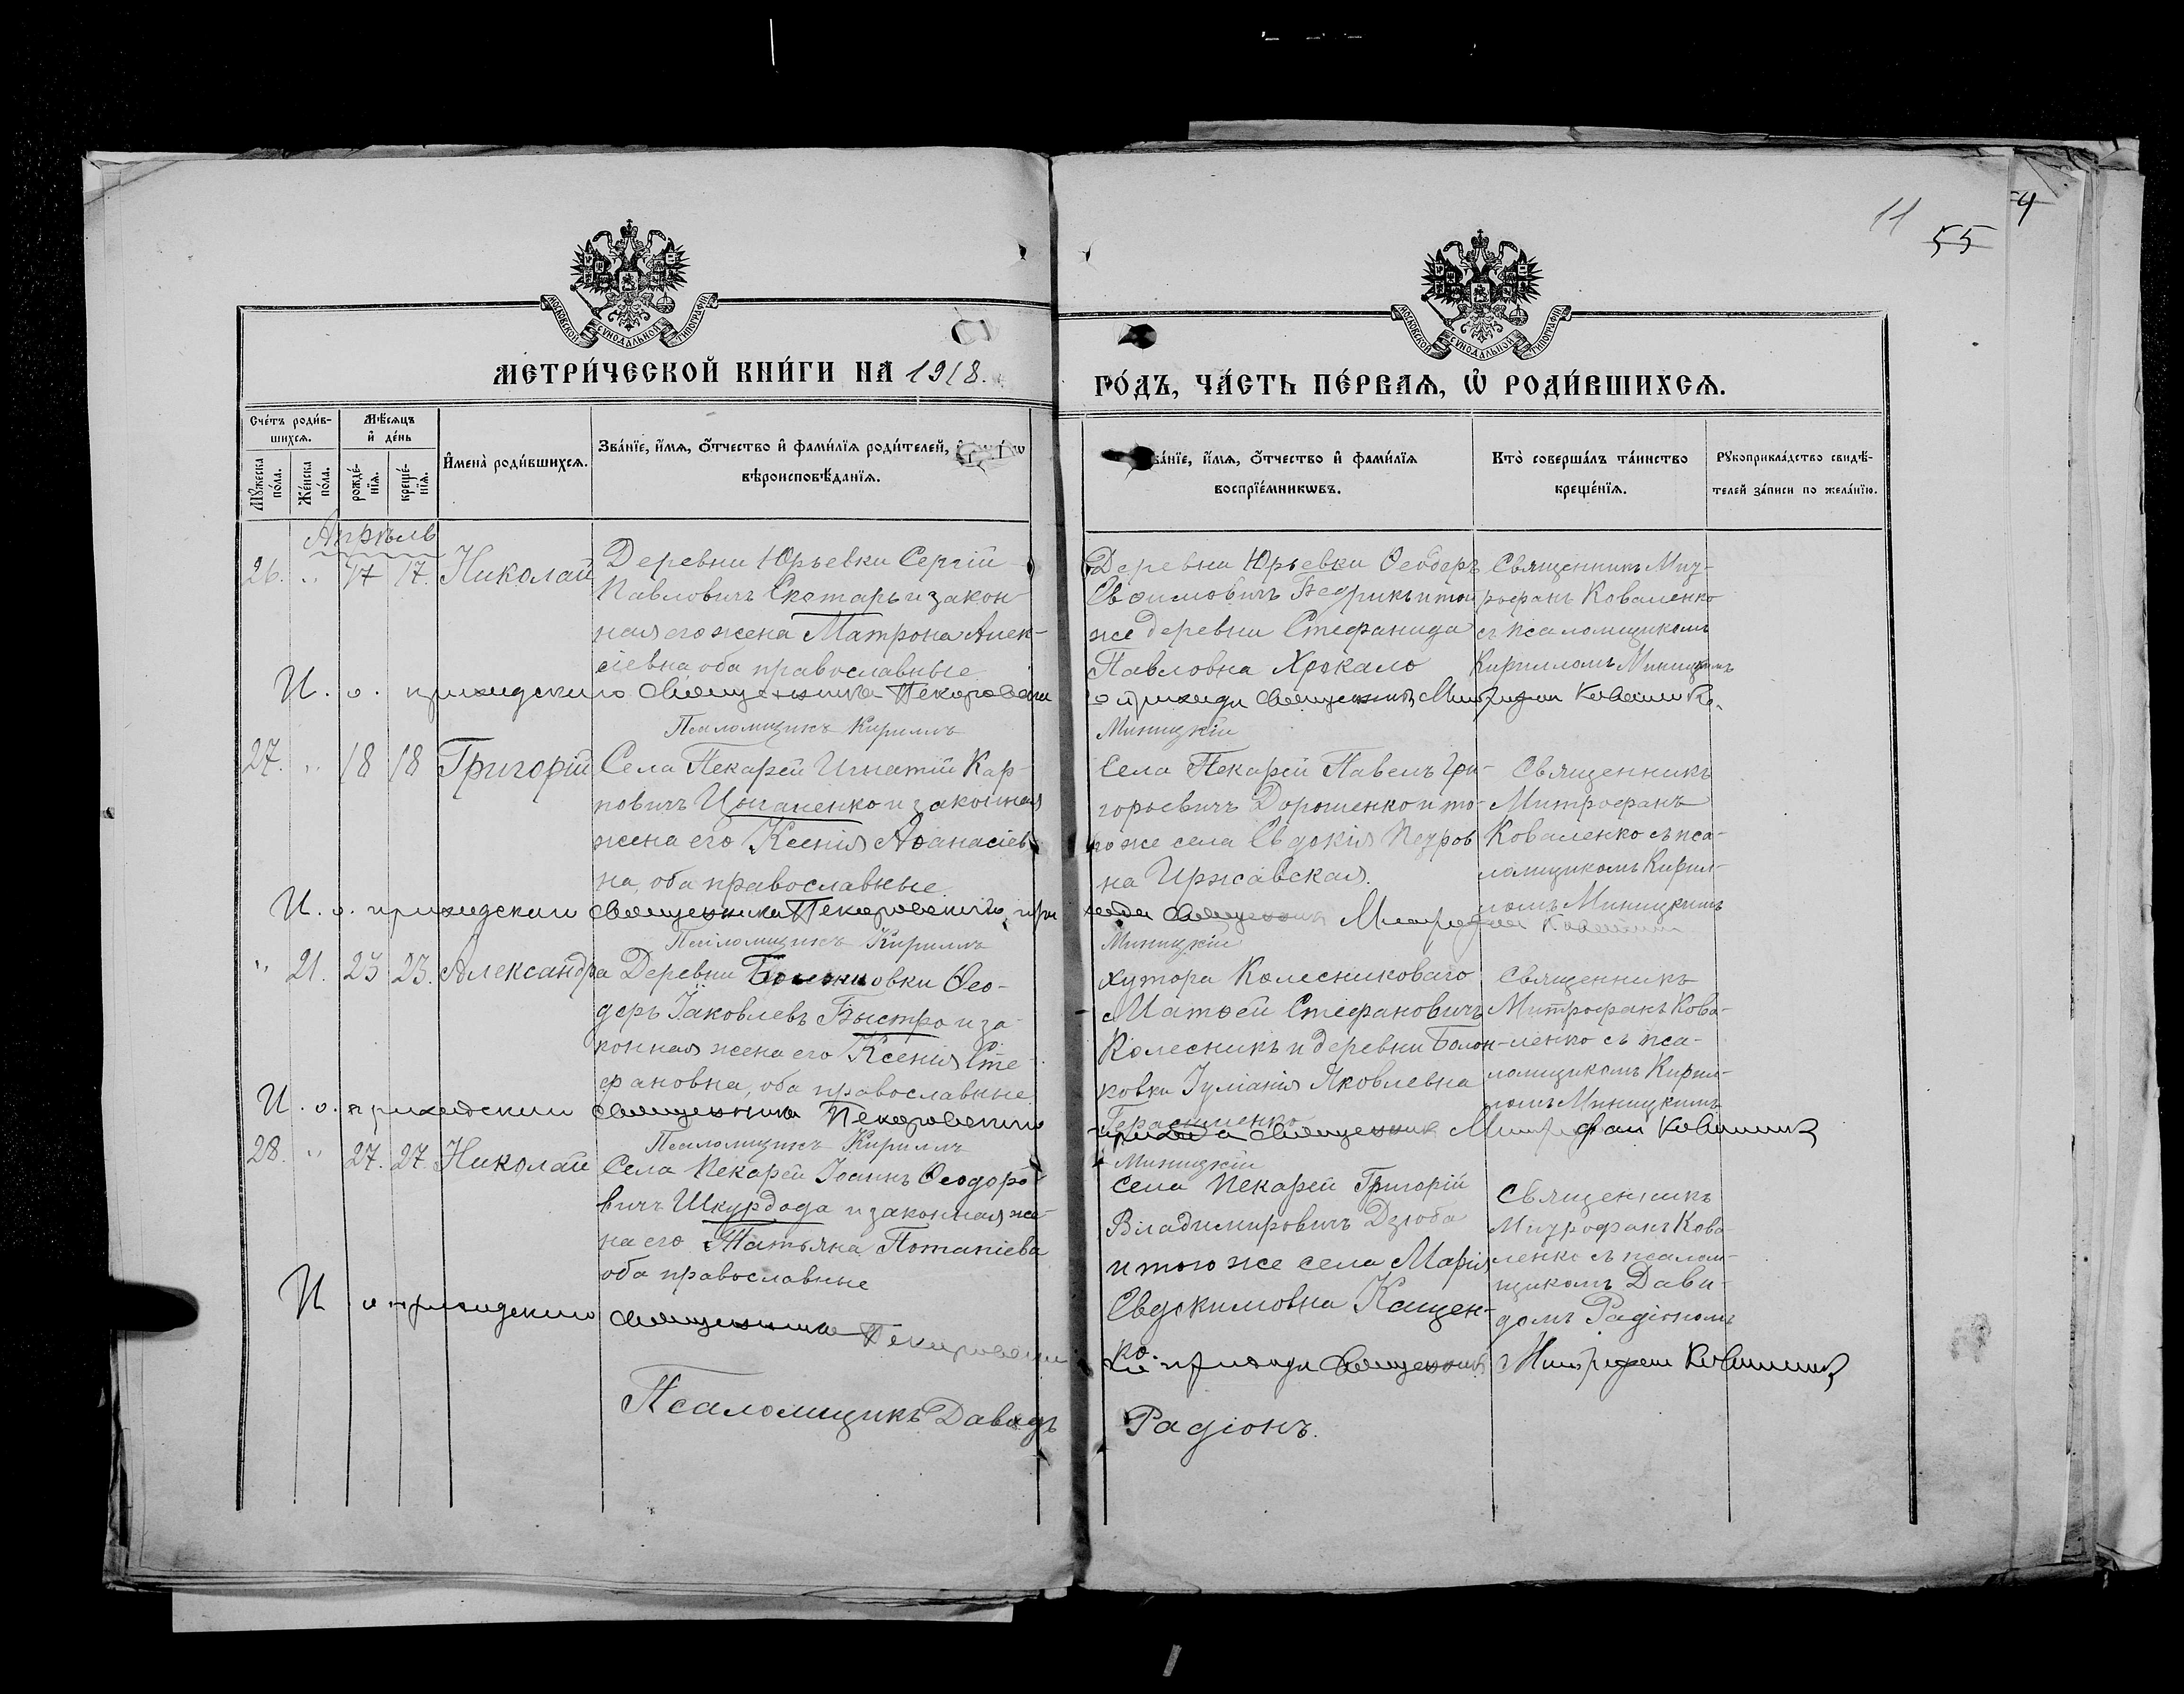 11
55
4
МОСКОВСКОЙ СѴНОДАЛЬНОЙ ТИПОГРАФІИ
МОСКОВСКОЙ СѴНОДАЛЬНОЙ ТИПОГРАФІИ
МЕТРИ́ЧЕСКОЙ КНИ́ГИ НА 1918.
ГО́ДЪ, ЧА́СТЬ ПЕ́РВАЯ, Ѡ҆ РОДИ́ВШИХСЯ.
Сче́тъ роди́в-
шихся.
Мѣ́сяцъ
и҆ де́нь
Мꙋ́жеска
по́ла.
Же́нска
по́ла.
рожде́-
нїя.
креще́-
нїя.
И҆мена̀ роди́вшихся.
Зва́нїе, и҆́мя, ѻ҆́тчество и҆ фами́лїя роди́телей,
вѣроисповѣ́данїя.
ва́нїе, и҆́мя, ѻ҆́тчество и҆ фами́лїя
воспрїе́мникѡвъ.
Кто̀ соверша́лъ та́инство
креще́нїя.
Рꙋкоприкла́дство свидѣ́-
телей за́писи по жела́нїю.
Апрѣль
26. „ 17 17. Николай
Деревни Юрьевки Сергій
Павловичъ Скотарь и закон-
ная его жена Матрона Алек-
сіевна, оба православные.
Деревни Юрьевки Ѳеодоръ
Евѳимовичъ Бедрикъ и той
же деревни Стефанида
Павловна Хрокало
Священникъ Мит-
рофанъ Коваленко
съ псаломщикомъ
Кирилломъ Миницкимъ
И. о. приходскаго священника Пекаревской
прихода священникъ Митрофан Коваленко.
Псаломщикъ Кириллъ
Миницкій
27. „ 18 18 Григорій
Села Пекарей Игнатій Кар-
повичъ Цыганенко и законная
жена его Ксенія Аѳанасіев-
на, оба православные.
Села Пекарей Павелъ Гри-
горьевичъ Дорошенко и то-
го же села Евдокія Петров
на Иржавская.
Священникъ
Митрофанъ
Коваленко съ пса-
ломщикомъ Кирил-
ломъ Миницкимъ
И. о. приходскаго священника Пекаревскаго при
хода священник Митрофан Коваленко
Псаломщикъ Кириллъ
Миницкій
„ 21. 23 23. Александра
Деревни Болонковки Ѳео-
доръ Іаковлевъ Быстро и за-
конная жена его Ксенія Сте-
фановна, оба православные
хутора Колесниковаго
Матѳей Стефановичъ
Колесникъ и деревни Болон-
ковки Іуліанія Яковлевна
Герасименко
Священникъ
Митрофанъ Кова-
ленко съ пса-
ломщикомъ Кирил-
ломъ Миницкимъ
И. о. приходскаго священника Пекаревскаго
прихода священник Митрофан Коваленко
Псаломщикъ Кириллъ
Миницкій
28. „ 27. 27. Николай
Села Пекарей Іоаннъ Ѳеодоро-
вичъ Шкурдода и законная же-
на его Татьяна Потапіева
оба православные
села Пекарей Григорій
Владимировичъ Дзюба
и того же села Марія
Евдокимовна Кащен-
ко.
Священникъ
Митрофанъ Кова-
ленко съ псалом-
щикомъ Дави-
домъ Радіономъ
И о приходскаго священника Пекаревска
го прихода священникъ Митрофан Коваленко
Псаломщикъ Давидъ
Радіонъ.